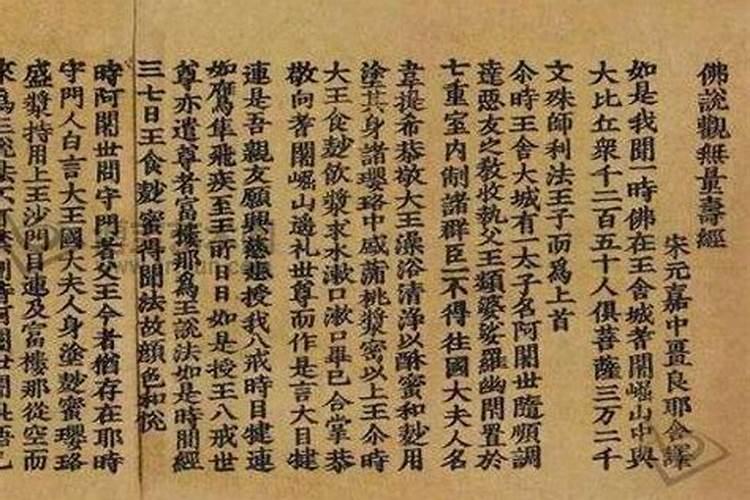 佛說觀無量壽經
宋元嘉中畺良耶舍譯
如是我聞一時佛在王舍城耆闍崛山中與
大比丘衆千二百五十人俱菩薩三万二千
文殊師利法王子而爲上首
尒時王舍大城有一太子名阿闍世隨順調
達惡友之教收執父王頻婆娑羅幽閇置於
七重室内制諸群臣一不得往國大夫人名
韋提希恭敬大王澡浴清淨以酥蜜和麨用
塗其身諸瓔珞中盛蒲桃漿密以上王尒時
大王食麨飲漿求水漱口漱口畢已合掌恭
敬向耆闍崛山遥礼世尊而作是言大目犍
連是吾親友願興慈悲授我八戒時目犍連
如鷹隼飛疾至王所日日如是授王八戒世
尊亦遣尊者富樓那爲王說法如是時閒經
三七日王食麨蜜得聞法故顔色和悅
時阿闍世問守門者父王今者猶存在耶時
守門人白言大王國大夫人身塗麨蜜瓔珞
盛漿持用上王沙門目連及富樓那從空而
來爲王說法不可禁制時阿闍世聞此語已